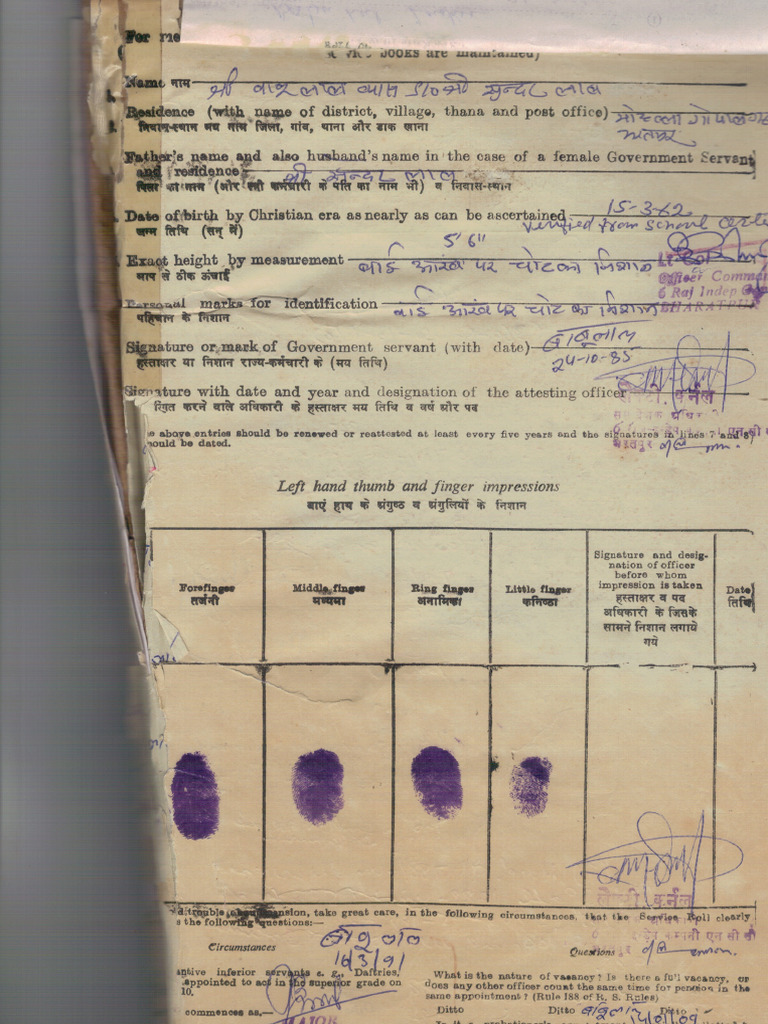 For
BOOKS are maintained)
Name नाम श्री बाबू लाल व्यास S/o श्री सुन्दर लाल
Residence (with name of district, village, thana and post office) मोहल्ला गोपालगढ
निवास-स्थान मय नाम जिला, गांव, थाना और डाक खाना भरतपुर
Father's name and also husband's name in the case of a female Government Servant
and residence श्री सुन्दर लाल
पिता का नाम (और स्त्री कर्मचारी के पति का नाम भी) व निवास-स्थान
Date of birth by Christian era as nearly as can be ascertained 15-3-62
जन्म तिथि (सन् में) Verified from School
5' 6"
Exact height by measurement बाई आंख पर चोट का निशान
नाप से ठीक ऊंचाई Officer Comman
6 Raj Indep
BHARATPUR
Personal marks for identification बाई आंख पर चोट का निशान
पहिचान के निशान
Signature or mark of Government servant (with date) बाबूलाल
हस्ताक्षर या निशान राज्य-कर्मचारी के (मय तिथि) 24-10-85
Signature with date and year and designation of the attesting officer
कर्नल
रित करने वाले अधिकारी के हस्ताक्षर मय तिथि व वर्ष और पद
e above entries should be renewed or reattested at least every five years and the signatures in lines 7 and 8
hould be dated. भरतपुर
Left hand thumb and finger impressions
बाएं हाथ के अंगुष्ठ व अंगुलियों के निशान
Forefinger
तर्जनी
Middle finger
मध्यमा
Ring finger
अनामिका
Little finger
कनिष्ठा
Signature and desig-
nation of officer
before whom
impression is taken
हस्ताक्षर व पद
अधिकारी के जिसके
सामने निशान लगाये
गये
Date
तिथि
कर्नल
d trouble pension, take great care, in the following circumstances, that the Service Roll clearly
s the following questions:—
बाबू लाल
16/3/91
Circumstances
Questions
antive inferior servants e. g., Daftries,
appointed to act in the superior grade on
10.
commences as,—
MAJOR
What is the nature of vacancy? Is there a full vacancy, or
does any other officer count the same time for pension in the
same appointment? (Rule 188 of R. S. Rules)
Ditto Ditto बाबूलाल Ditto